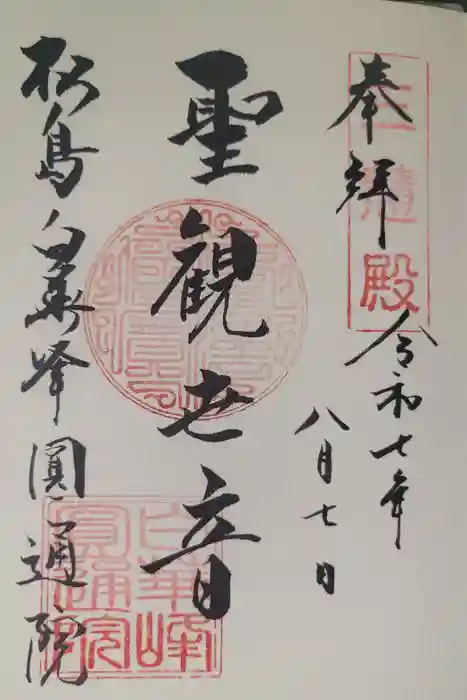 奉拝
三慧殿
令和七年
八月七日
聖観世音
松島白華峯圓通院
白華峰
圓通院